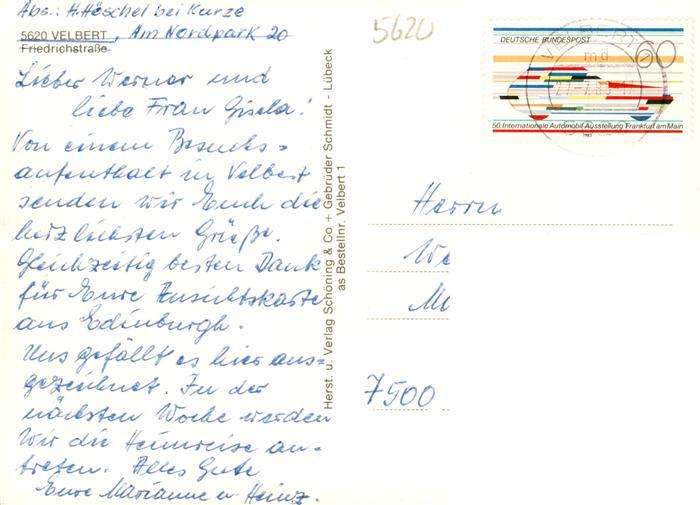 Abs.: H. Höschel bei Kurze
5620 VELBERT, Am Nordpark 20
Friedrichstraße
Lieber Werner und
liebe Frau Gisela!
Von einem Besuchs=
aufenthalt in Velbert
senden wir Euch die
herzlichsten Grüße.
Gleichzeitig besten Dank
für Eure Ansichtskarte
aus Edinburgh.
Uns gefällt es hier aus=
gezeichnet. In der
nächsten Woche werden
wir die Heimreise an=
treten. Alles Gute
Eure Marianne u. Heinz.
Herst. u. Verlag Schöning & Co + Gebrüder Schmidt - Lübeck
as Bestellnr. Velbert 1
5620
DEUTSCHE BUNDESPOST
60
50. Internationale Automobil-Ausstellung Frankfurt am Main
1983
VELBERT
Herrn
We
7500